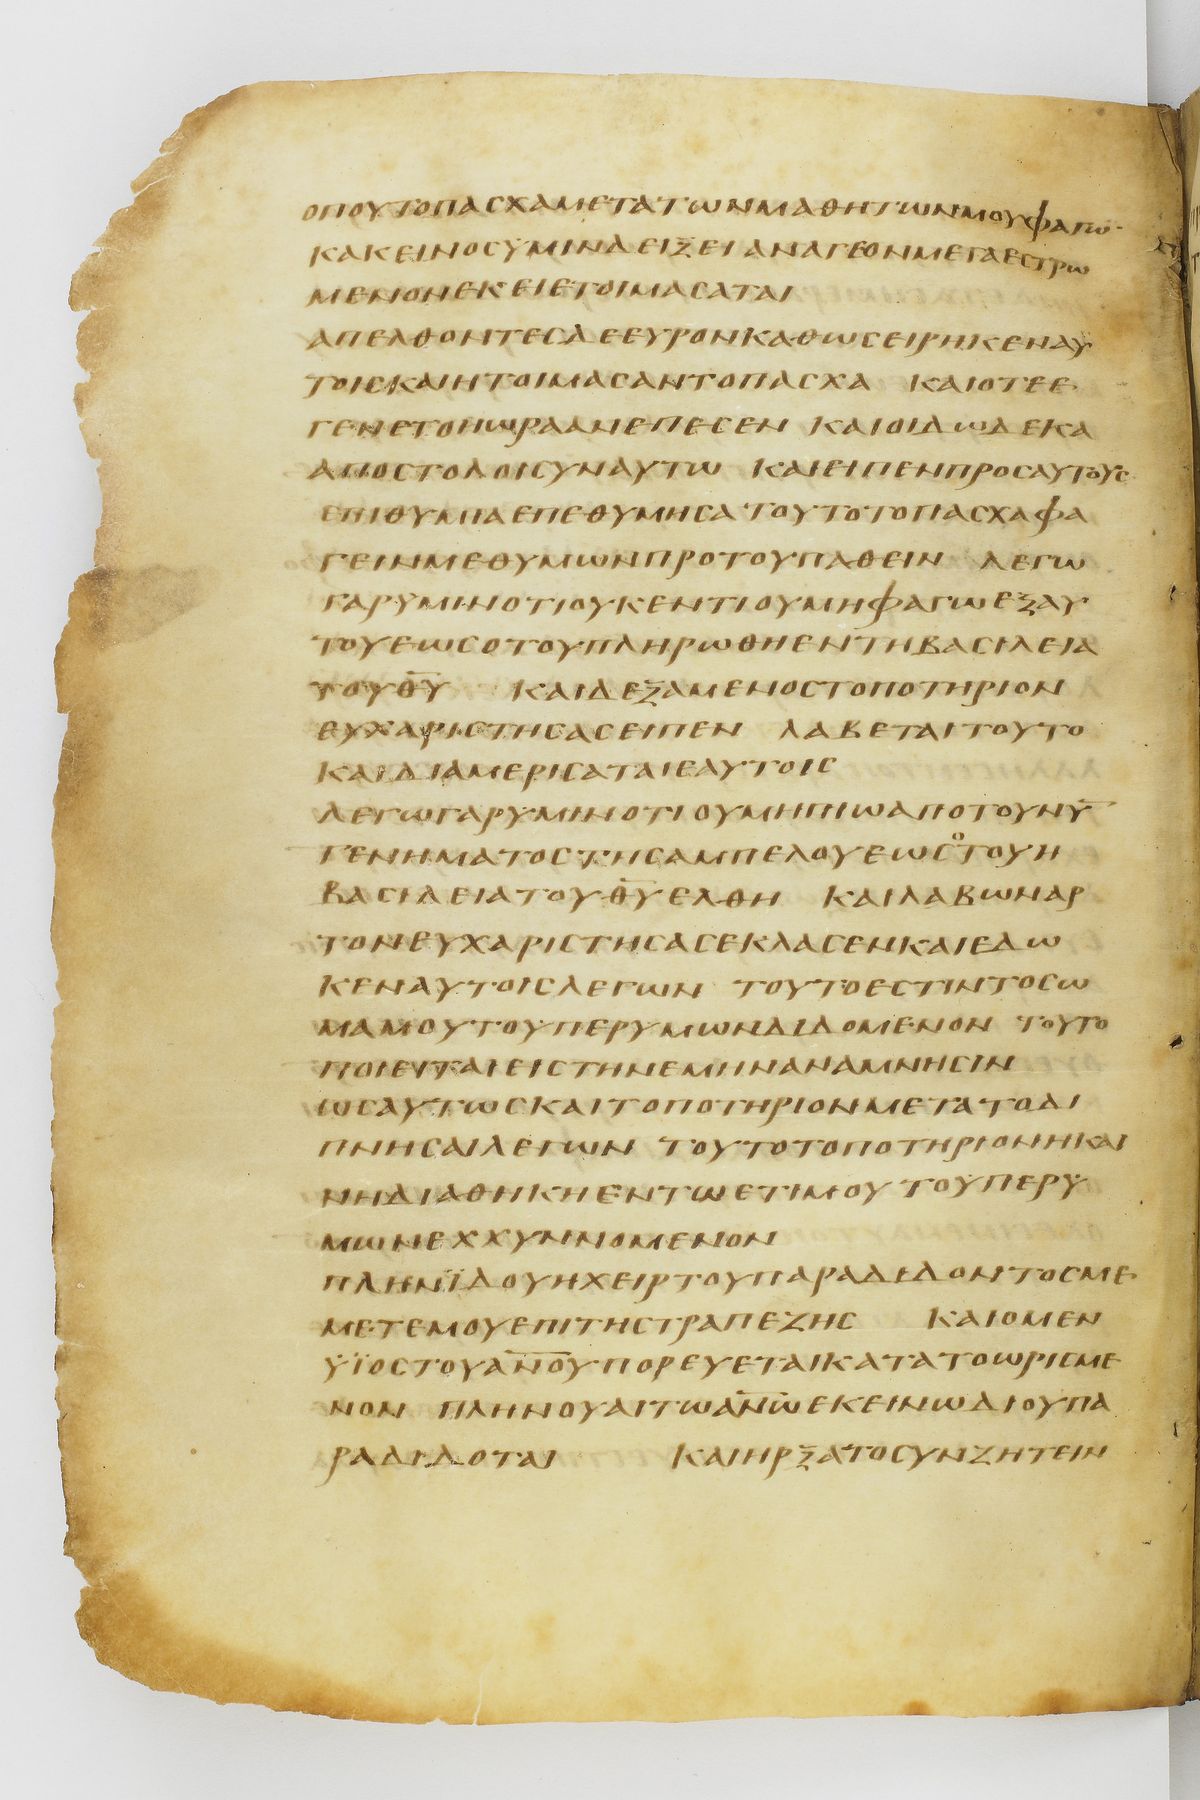 ΟΠΟΥΤΟΠΑΣΧΑΜΕΤΑΤΩΝΜΑΘΗΤΩΝΜΟΥΦΑΓΩ
ΚΑΚΕΙΝΟΣΥΜΙΝΔΕΙΞΕΙΑΝΑΓΕΟΝΜΕΓΑΕΣΤΡΩ
ΜΕΝΟΝΕΚΕΙΕΤΟΙΜΑΣΑΤΑΙ
ΑΠΕΛΘΟΝΤΕΣΔΕΕΥΡΟΝΚΑΘΩΣΕΙΡΗΚΕΝΑΥ
ΤΟΙΣΚΑΙΗΤΟΙΜΑΣΑΝΤΟΠΑΣΧΑ ΚΑΙΟΤΕΕ
ΓΕΝΕΤΟΗΩΡΑΑΝΕΠΕΣΕΝ ΚΑΙΟΙΔΩΔΕΚΑ
ΑΠΟΣΤΟΛΟΙΣΥΝΑΥΤΩ ΚΑΙΕΙΠΕΝΠΡΟΣΑΥΤΟΥΣ
ΕΠΙΘΥΜΙΑΕΠΕΘΥΜΗΣΑΤΟΥΤΟΤΟΠΑΣΧΑΦΑ
ΓΕΙΝΜΕΘΥΜΩΝΠΡΟΤΟΥΠΑΘΕΙΝ ΛΕΓΩ
ΓΑΡΥΜΙΝΟΤΙΟΥΚΕΝΤΙΟΥΜΗΦΑΓΩΕΞΑΥ
ΤΟΥΕΩΣΟΤΟΥΠΛΗΡΩΘΗΕΝΤΗΒΑΣΙΛΕΙΑ
ΤΟΥΘ̅Υ̅ ΚΑΙΔΕΞΑΜΕΝΟΣΤΟΠΟΤΗΡΙΟΝ
ΕΥΧΑΡΙΣΤΗΣΑΣΕΙΠΕΝ ΛΑΒΕΤΑΙΤΟΥΤΟ
ΚΑΙΔΙΑΜΕΡΙΣΑΤΑΙΕΑΥΤΟΙΣ
ΛΕΓΩΓΑΡΥΜΙΝΟΤΙΟΥΜΗΠΙΩΑΠΟΤΟΥΝΥ̅
ΓΕΝΗΜΑΤΟΣΤΗΣΑΜΠΕΛΟΥΕΩΣΟΤΟΥΗ
ΒΑΣΙΛΕΙΑΤΟΥΘ̅Υ̅ΕΛΘΗ ΚΑΙΛΑΒΩΝΑΡ
ΤΟΝΕΥΧΑΡΙΣΤΗΣΑΣΕΚΛΑΣΕΝΚΑΙΕΔΩ
ΚΕΝΑΥΤΟΙΣΛΕΓΩΝ ΤΟΥΤΟΕΣΤΙΝΤΟΣΩ
ΜΑΜΟΥΤΟΥΠΕΡΥΜΩΝΔΙΔΟΜΕΝΟΝ ΤΟΥΤΟ
ΠΟΙΕΙΤΑΙΕΙΣΤΗΝΕΜΗΝΑΝΑΜΝΗΣΙΝ
ΩΣΑΥΤΩΣΚΑΙΤΟΠΟΤΗΡΙΟΝΜΕΤΑΤΟΔΙ
ΠΝΗΣΑΙΛΕΓΩΝ ΤΟΥΤΟΤΟΠΟΤΗΡΙΟΝΗΚΑΙ
ΝΗΔΙΑΘΗΚΗΕΝΤΩΕΤΙΜΟΥΤΟΥΠΕΡΥ
ΜΩΝΕΧΧΥΝΝΟΜΕΝΟΝ
ΠΛΗΝΪΔΟΥΗΧΕΙΡΤΟΥΠΑΡΑΔΙΔΟΝΤΟΣΜΕ
ΜΕΤΕΜΟΥΕΠΙΤΗΣΤΡΑΠΕΖΗΣ ΚΑΙΟΜΕΝ
ΥΪΟΣΤΟΥΑ̅Ν̅Ο̅Υ̅ΠΟΡΕΥΕΤΑΙΚΑΤΑΤΟΩΡΙΣΜΕ
ΝΟΝ ΠΛΗΝΟΥΑΙΤΩΑ̅Ν̅Ω̅ΕΚΕΙΝΩΔΙΟΥΠΑ
ΡΑΔΙΔΟΤΑΙ ΚΑΙΗΡΞΑΤΟΣΥΝΖΗΤΕΙΝ